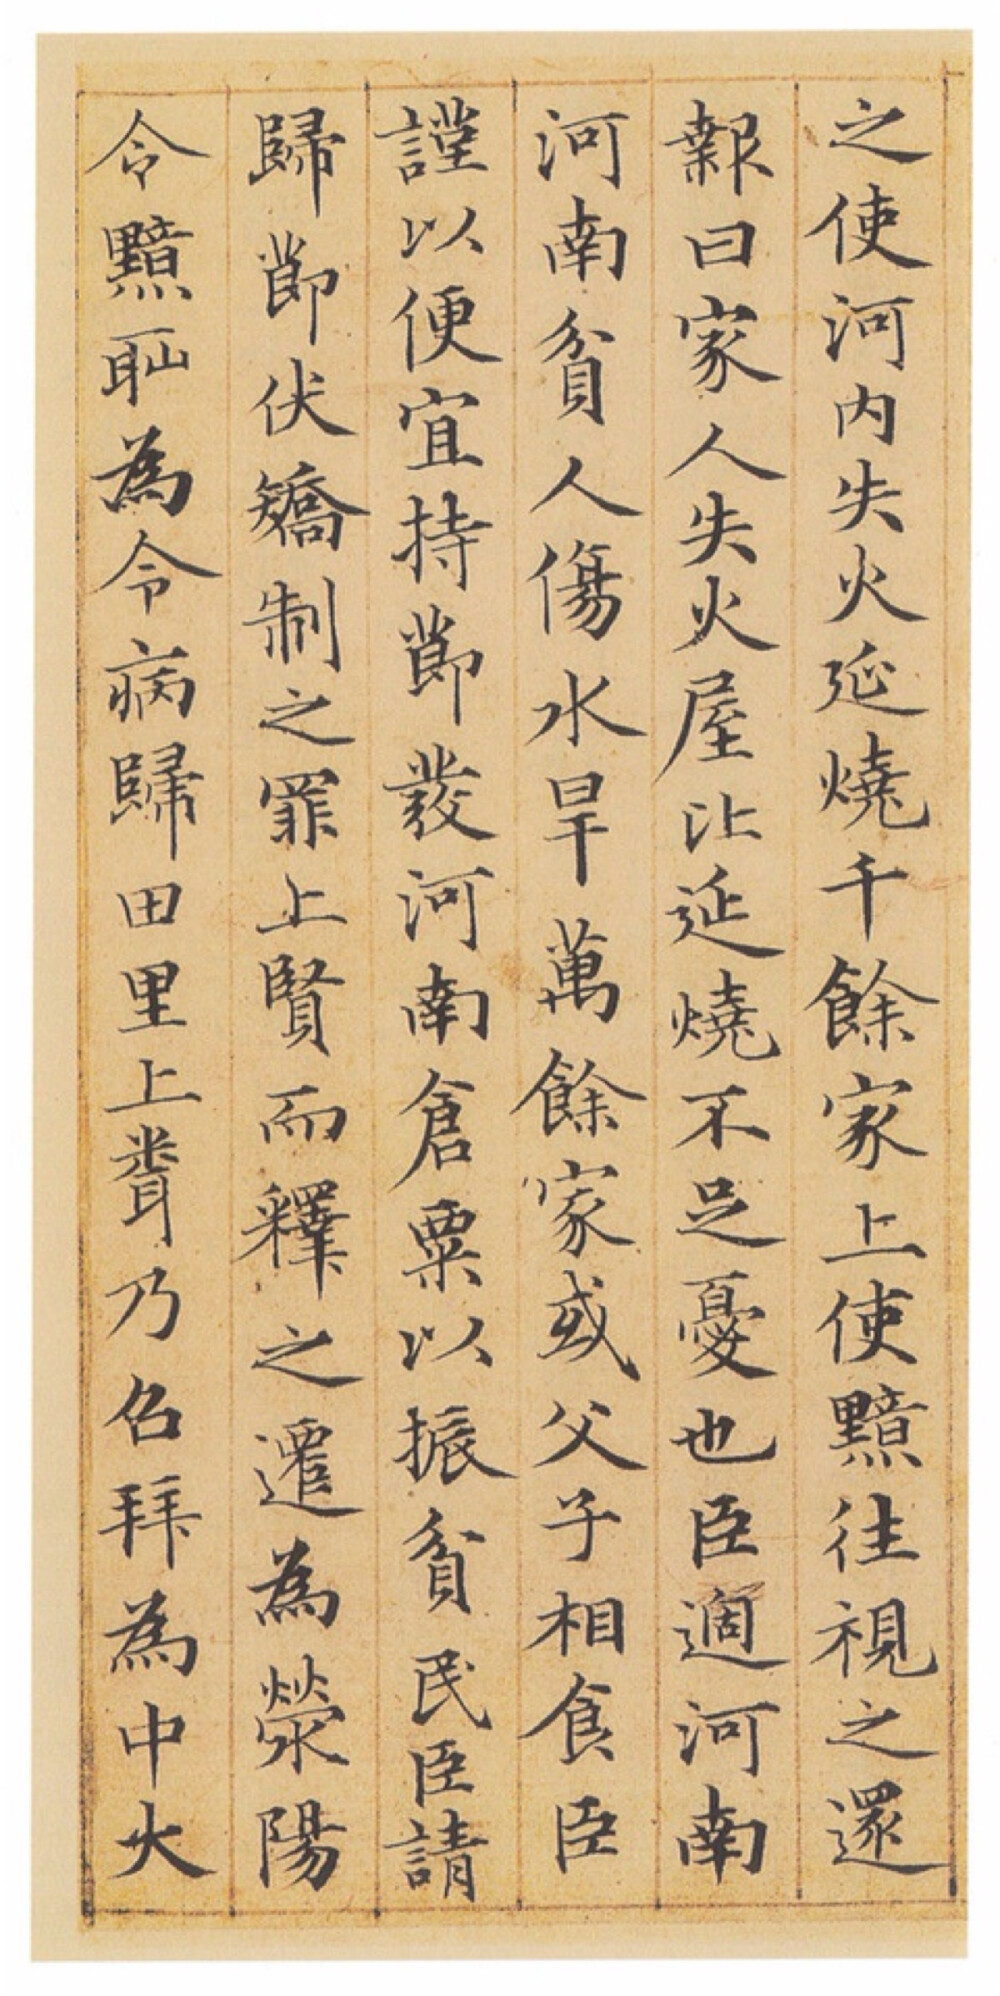 之使河内失火延燒千餘家上使黯往視之還
報曰家人失火屋比延燒不足憂也臣過河南
河南貧人傷水旱萬餘家或父子相食臣
謹以便宜持節發河南倉粟以振貧民臣請
歸節伏矯制之罪上賢而釋之遷為滎陽
令黯耻為令病歸田里上聞乃召拜為中大